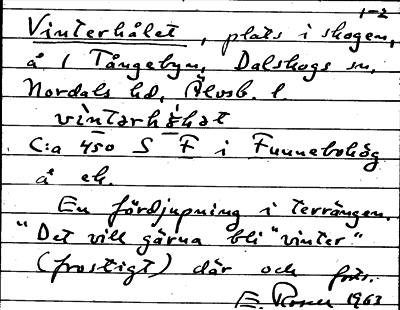 1-2
Vinterhålet, plats i skogen,
å 1 Tångebyn, Dalskogs sn,
Nordals hd, Älvsb. l.
C:a 450 S F i Funnebohög
å ek.
En fördjupning i terrängen.
"Det vill gärna bli "vinter"
(frostigt) där och forts.
E. Rosen 1963